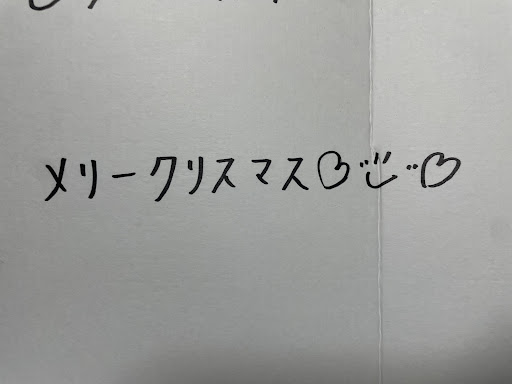 メリークリスマス♡¨ٿ¨♡